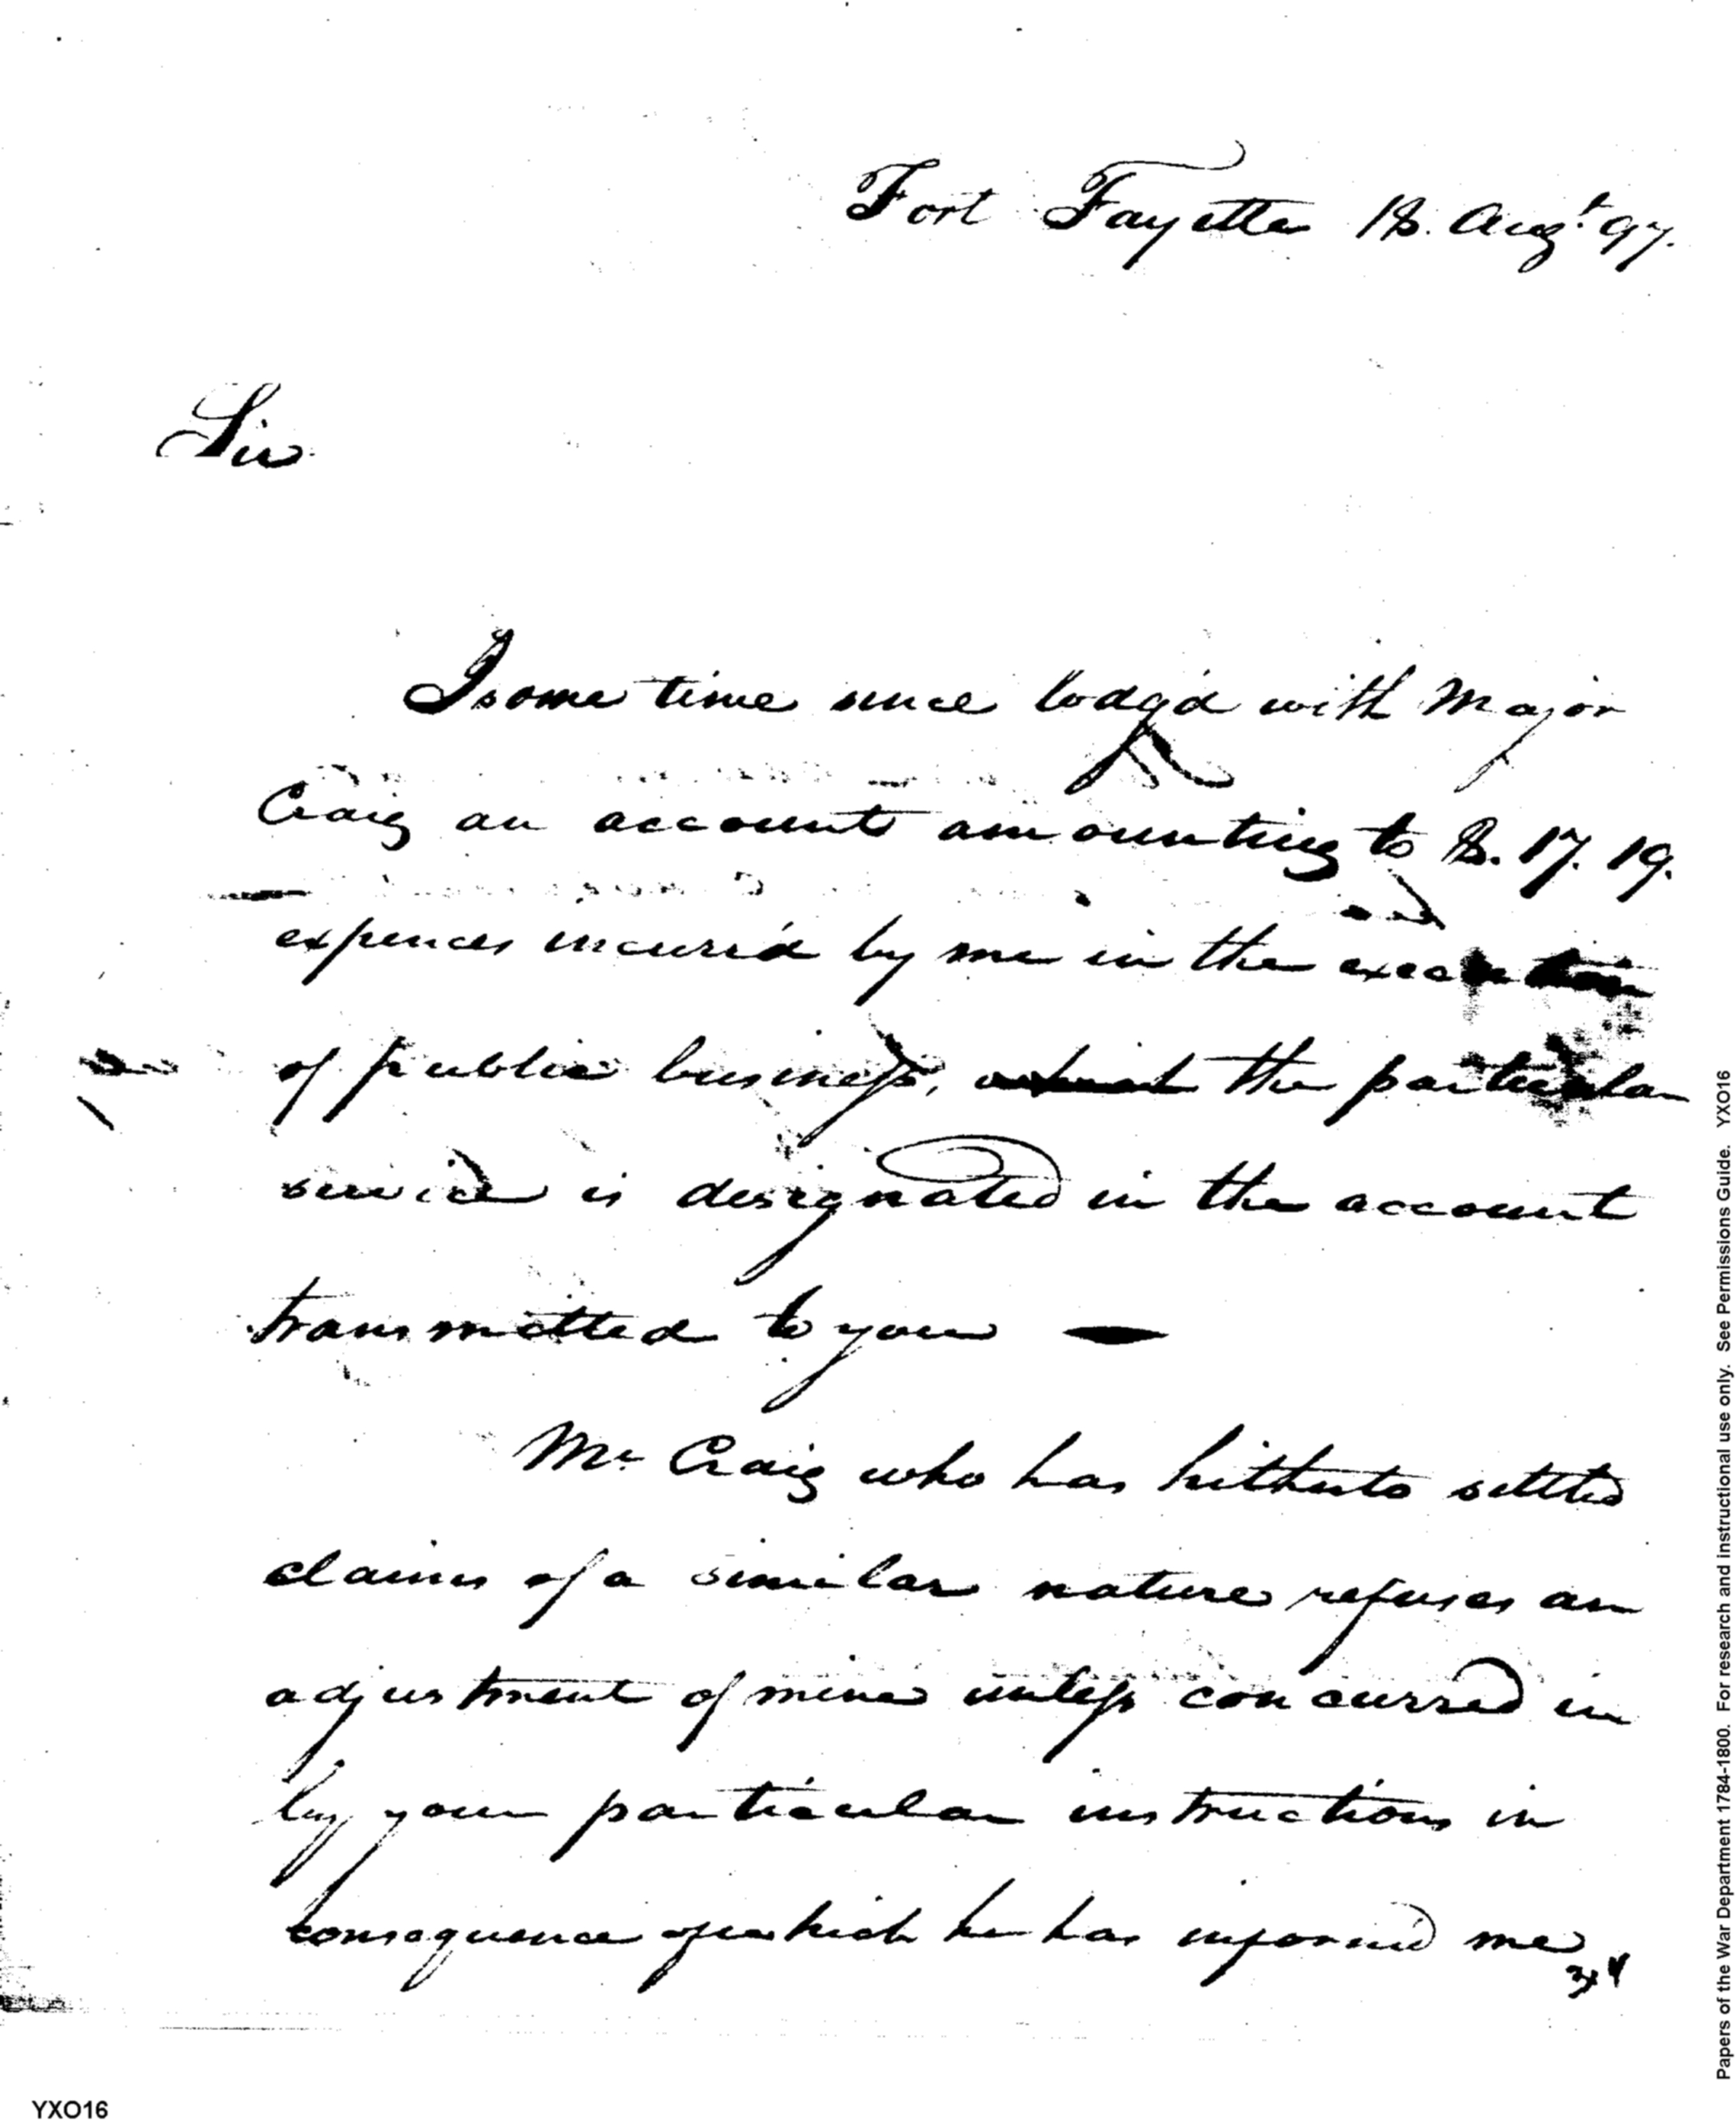 Fort Fayette 18. Augt. 97.
Sir
I some time since lodg'd with Major
Craig an account amounting to 17. 19.
expences incurr'd by me in the execution
of public business, the particular
service is designated in the account
transmitted to you —
Mr. Craig who has hitherto settled
claims of a similar nature refuses an
adjustment of mine unless concurred in
by your particular instructions in
consequence of which he has inform'd me
YXO16
Papers of the War Department 1784-1800. For research and instructional use only. See Permissions Guide. YXO16